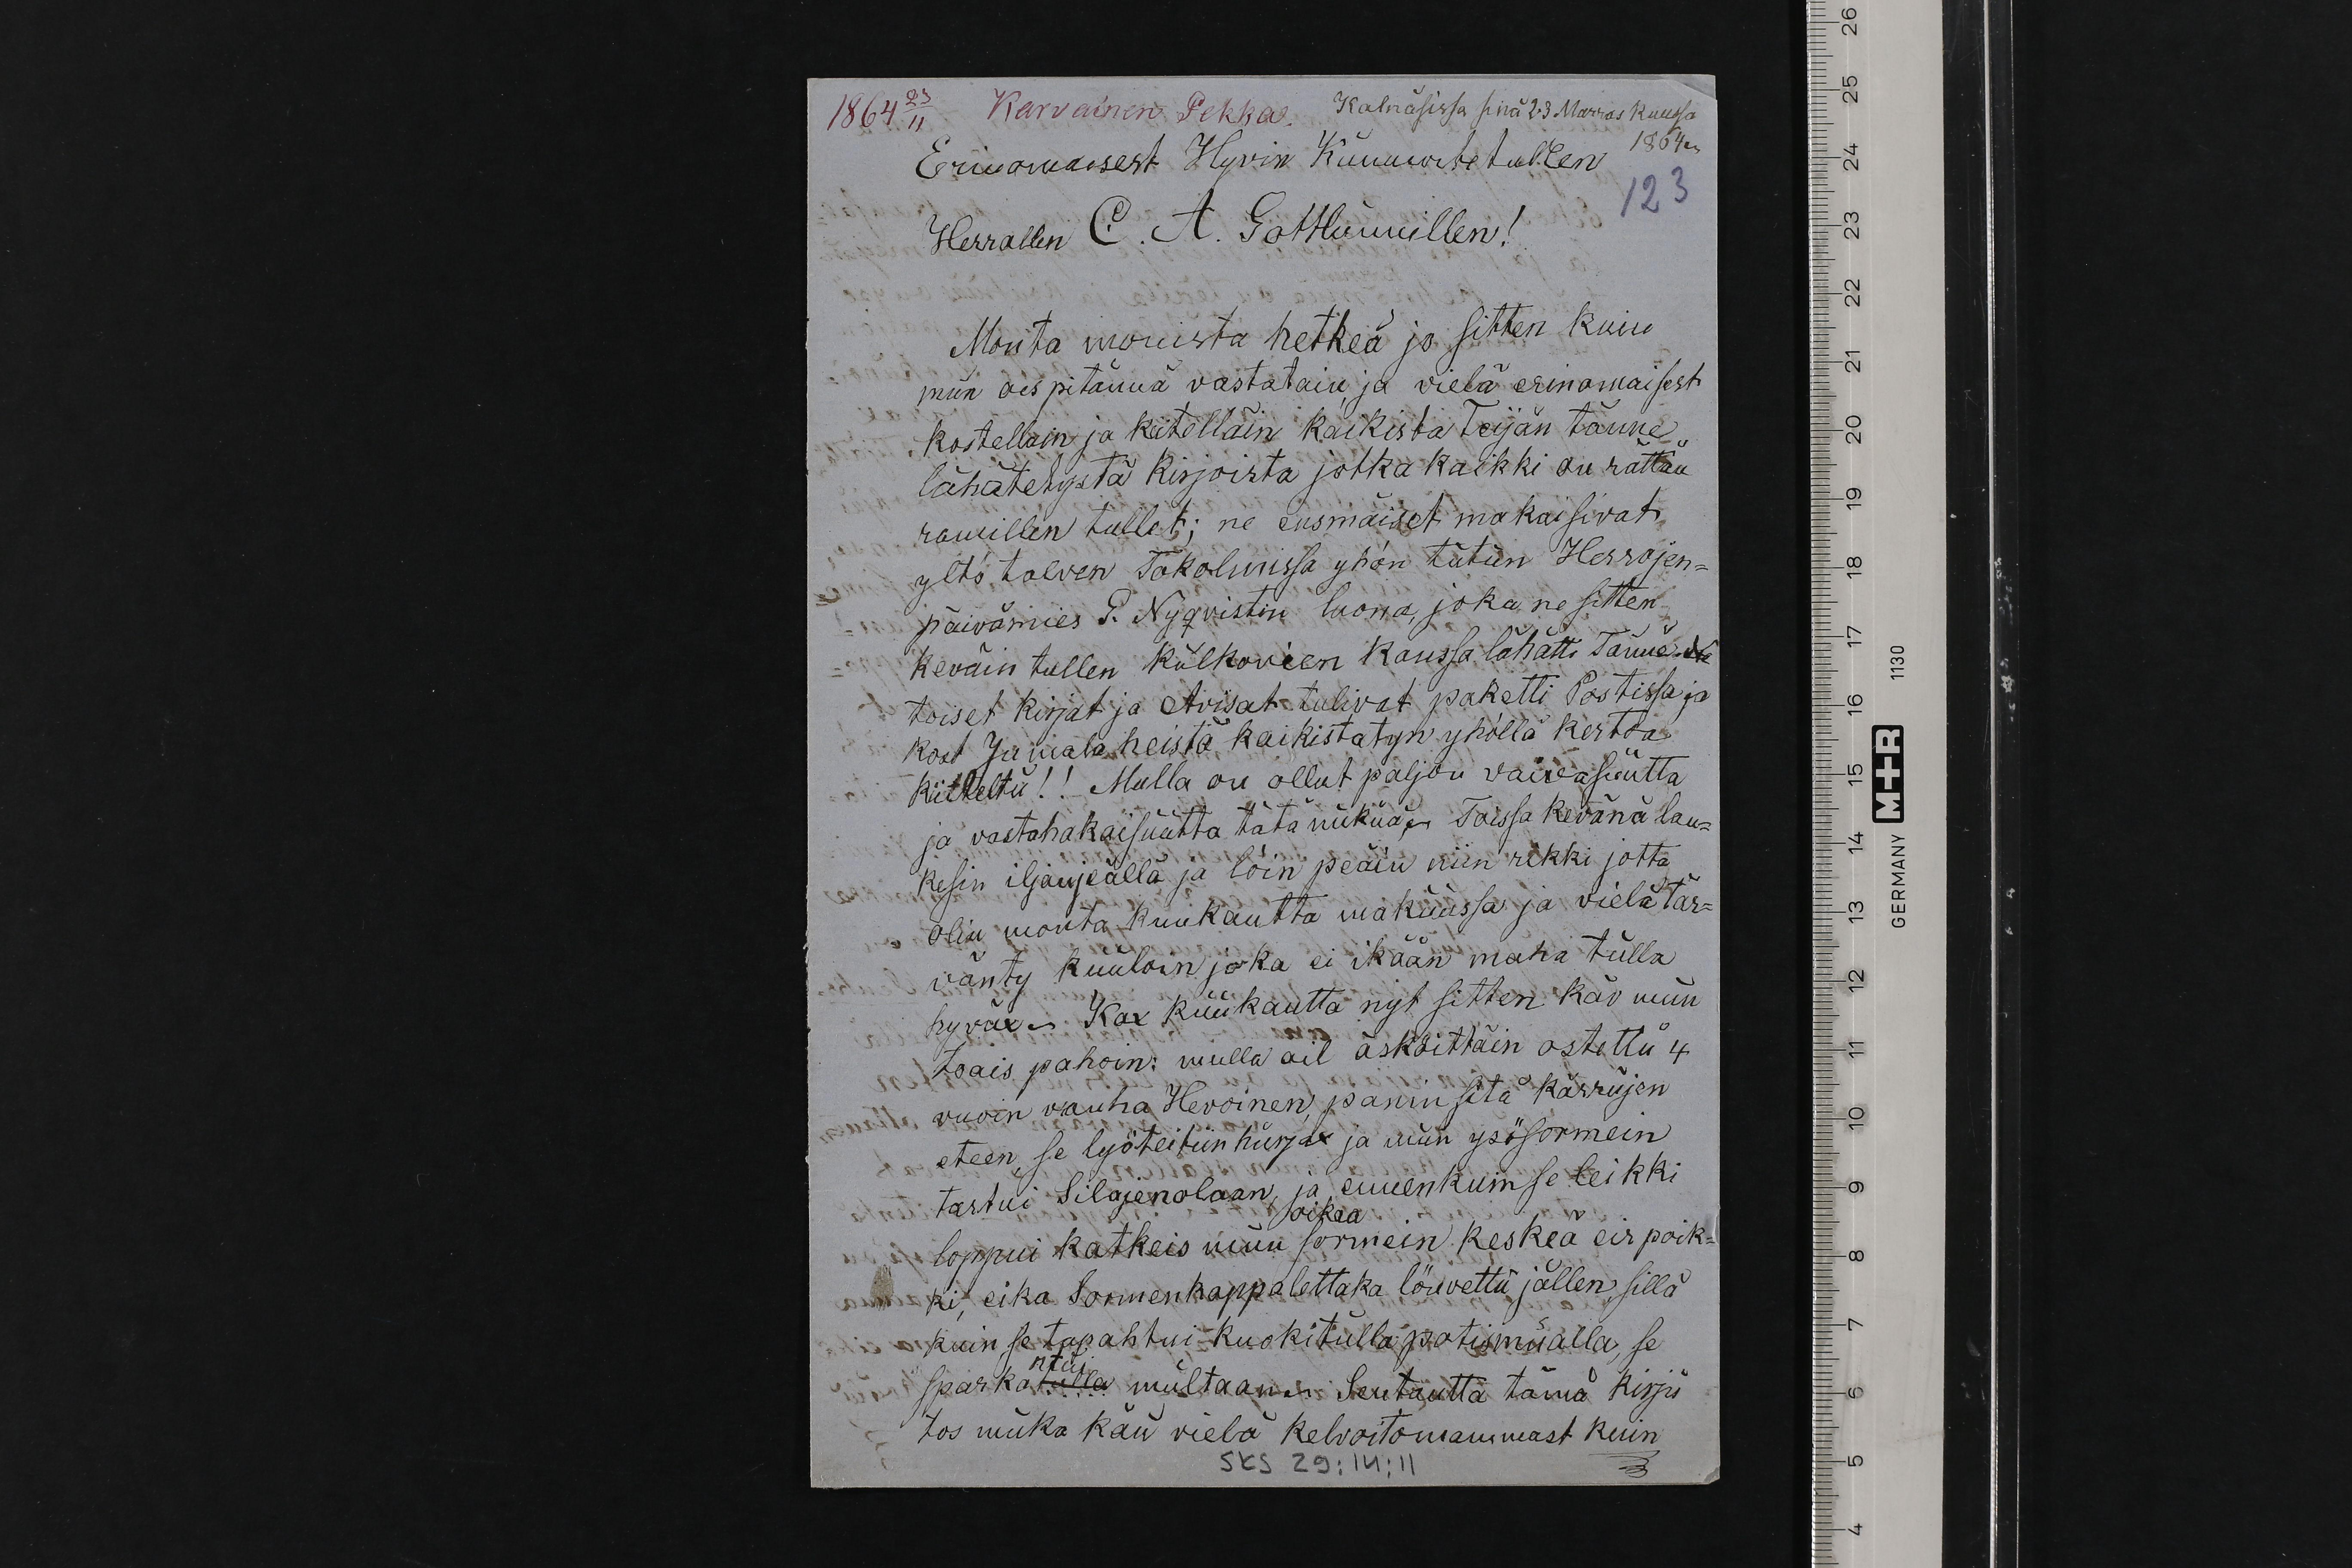 1864 23/11 Karvainen Pekka. Kalnäsissa sinä 23 Marras kuussa
1864
Erinomaisest Hyvin Kunnioitetullen
123
Herrallen C. A. Gottlunnillen!
Monta monista hetkeä jo sitten kuin
mun ois pitännä vastatain, ja vielä erinomaisest
kostellain ja kiitelläin kaikista Teijän tänne
lähätetystä kirjoista jotka kaikki on rättän
tullet; ne ensmäiset makaisivat
ylts talven Tokolmissa yhön tutun Herrojen=
päivämies P. Nyqvistin luona, joka ne sitten
keväin tullen külkovien kanssa lähätti Tänne Ne
toiset kirjat ja Avisat tulivat paketti Postissa ja
kost Jumala heistä kaikistatyn yhöllä kertoa
kiitteltü!! Mulla on ollut paljon vaivasuutta
ja vastahakaisuutta tätä nükuä Toissa kevänä lan=
kesin iljanjeällä ja löin peäin niin rikki jotta
olin monta kuukautta makuussa ja vielä tär=
vänty kuuloin joka ei ikään maha tulla
hyväx Kax kuukautta nyt sitten käv mun
toais pahoin: mulla oil äsköittäin ostettu 4
vuoin vauha Hevoinen, panin sitä kärrüjen
eteen, se lyöteitiin hurjax ja mun ysösormein
tartui Silajenolaan, ja ennenkuin se leikki
oikea
loppui katkeis mun sormein keskeä eis poik=
ki, eika Sormenkappalettaka löuvettu jällen, sillä
kuin se tapahtui kuokitulla potismualla, se
ntui
sparkatulla multaan Sentautta tämä kirju
tos muka käu vielä kelvoitomammast kuin
SKS 29:14:11
GERMANY M+R 1130
26
25
24
23
22
21
20
19
18
17
16
15
14
13
12
11
10
9
8
7
6
5
4